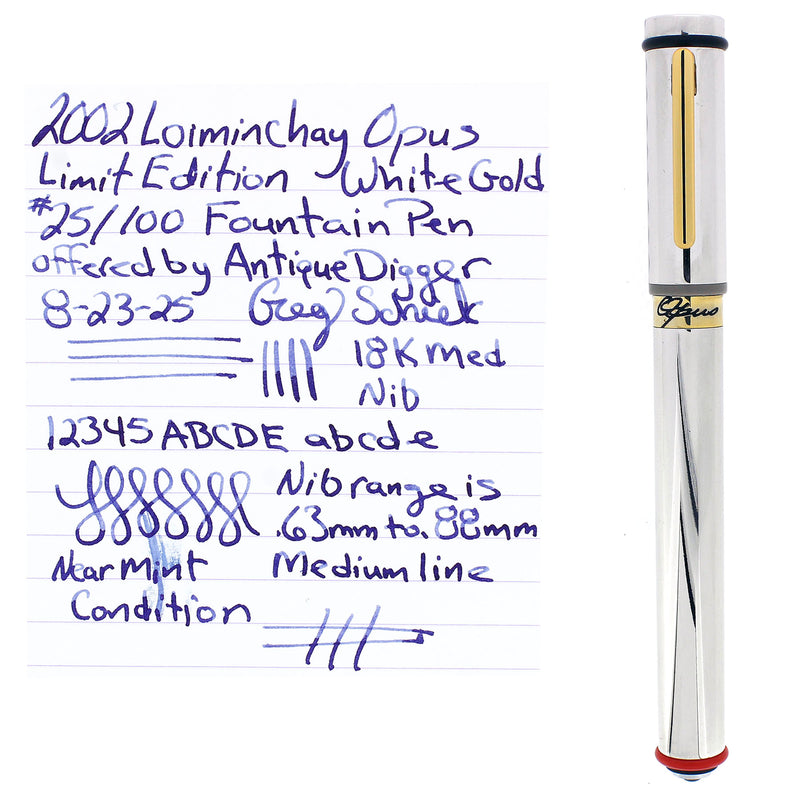 2002 Loiminchay Opus
Limit Edition White Gold
#25/100 Fountain Pen
offered by Antique Digger
8-23-25 Greg
18K Med
Nib
12345 ABCDE abcde
Nib range is
.63mm to .88mm
Near Mint Medium line
Condition
Opus